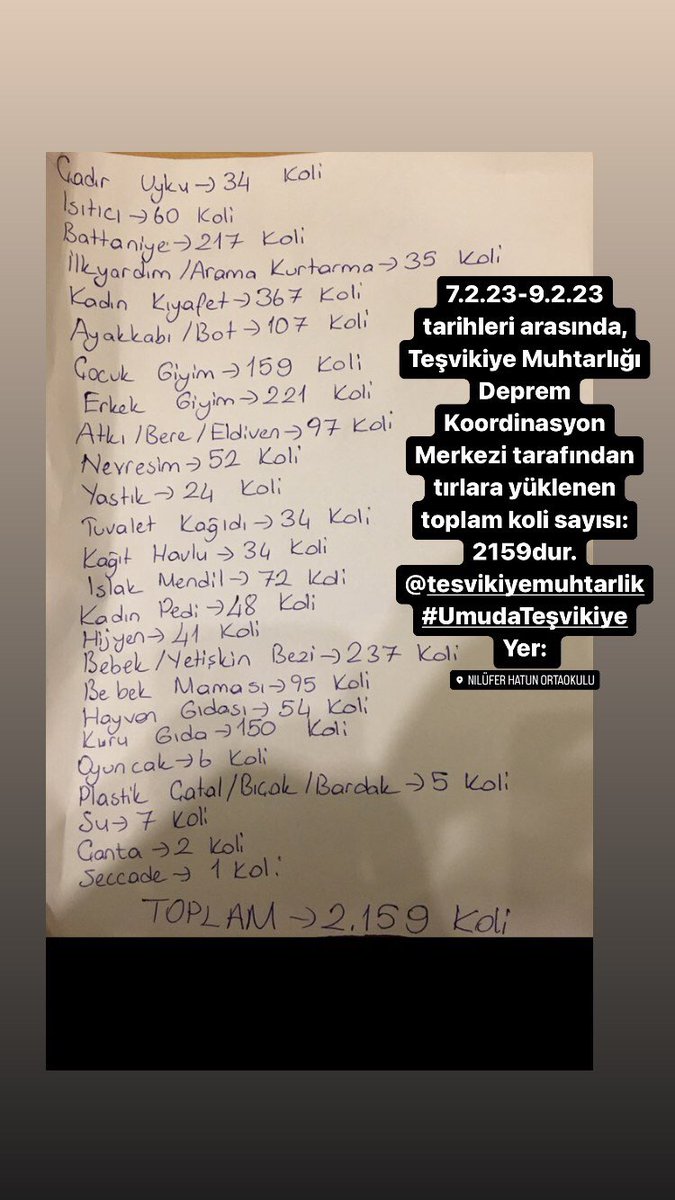 Çadır Uyku → 34 Koli
Isıtıcı → 60 Koli
Battaniye → 217 Koli
İlkyardım / Arama Kurtarma → 35 Koli
Kadın Kıyafet → 367 Koli
Ayakkabı / Bot → 107 Koli
Çocuk Giyim → 159 Koli
Erkek Giyim → 221 Koli
Atkı / Bere / Eldiven → 97 Koli
Nevresim → 52 Koli
Yastık → 24 Koli
Tuvalet Kağıdı → 34 Koli
Kağıt Havlu → 34 Koli
Islak Mendil → 72 Koli
Kadın Pedi → 48 Koli
Hijyen → 41 Koli
Bebek / Yetişkin Bezi → 237 Koli
Bebek Maması → 95 Koli
Hayvan Gıdası → 54 Koli
Kuru Gıda → 150 Koli
Oyuncak → 6 Koli
Plastik Çatal / Bıçak / Bardak → 5 Koli
Su → 7 Koli
Çanta → 2 Koli
Seccade → 1 Koli
TOPLAM → 2.159 Koli
7.2.23-9.2.23
tarihleri arasında,
Teşvikiye Muhtarlığı
Deprem
Koordinasyon
Merkezi tarafından
tırlara yüklenen
toplam koli sayısı:
2159dur.
@tesvikiyemuhtarlik
#UmudaTeşvikiye
Yer:
NİLÜFER HATUN ORTAOKULU